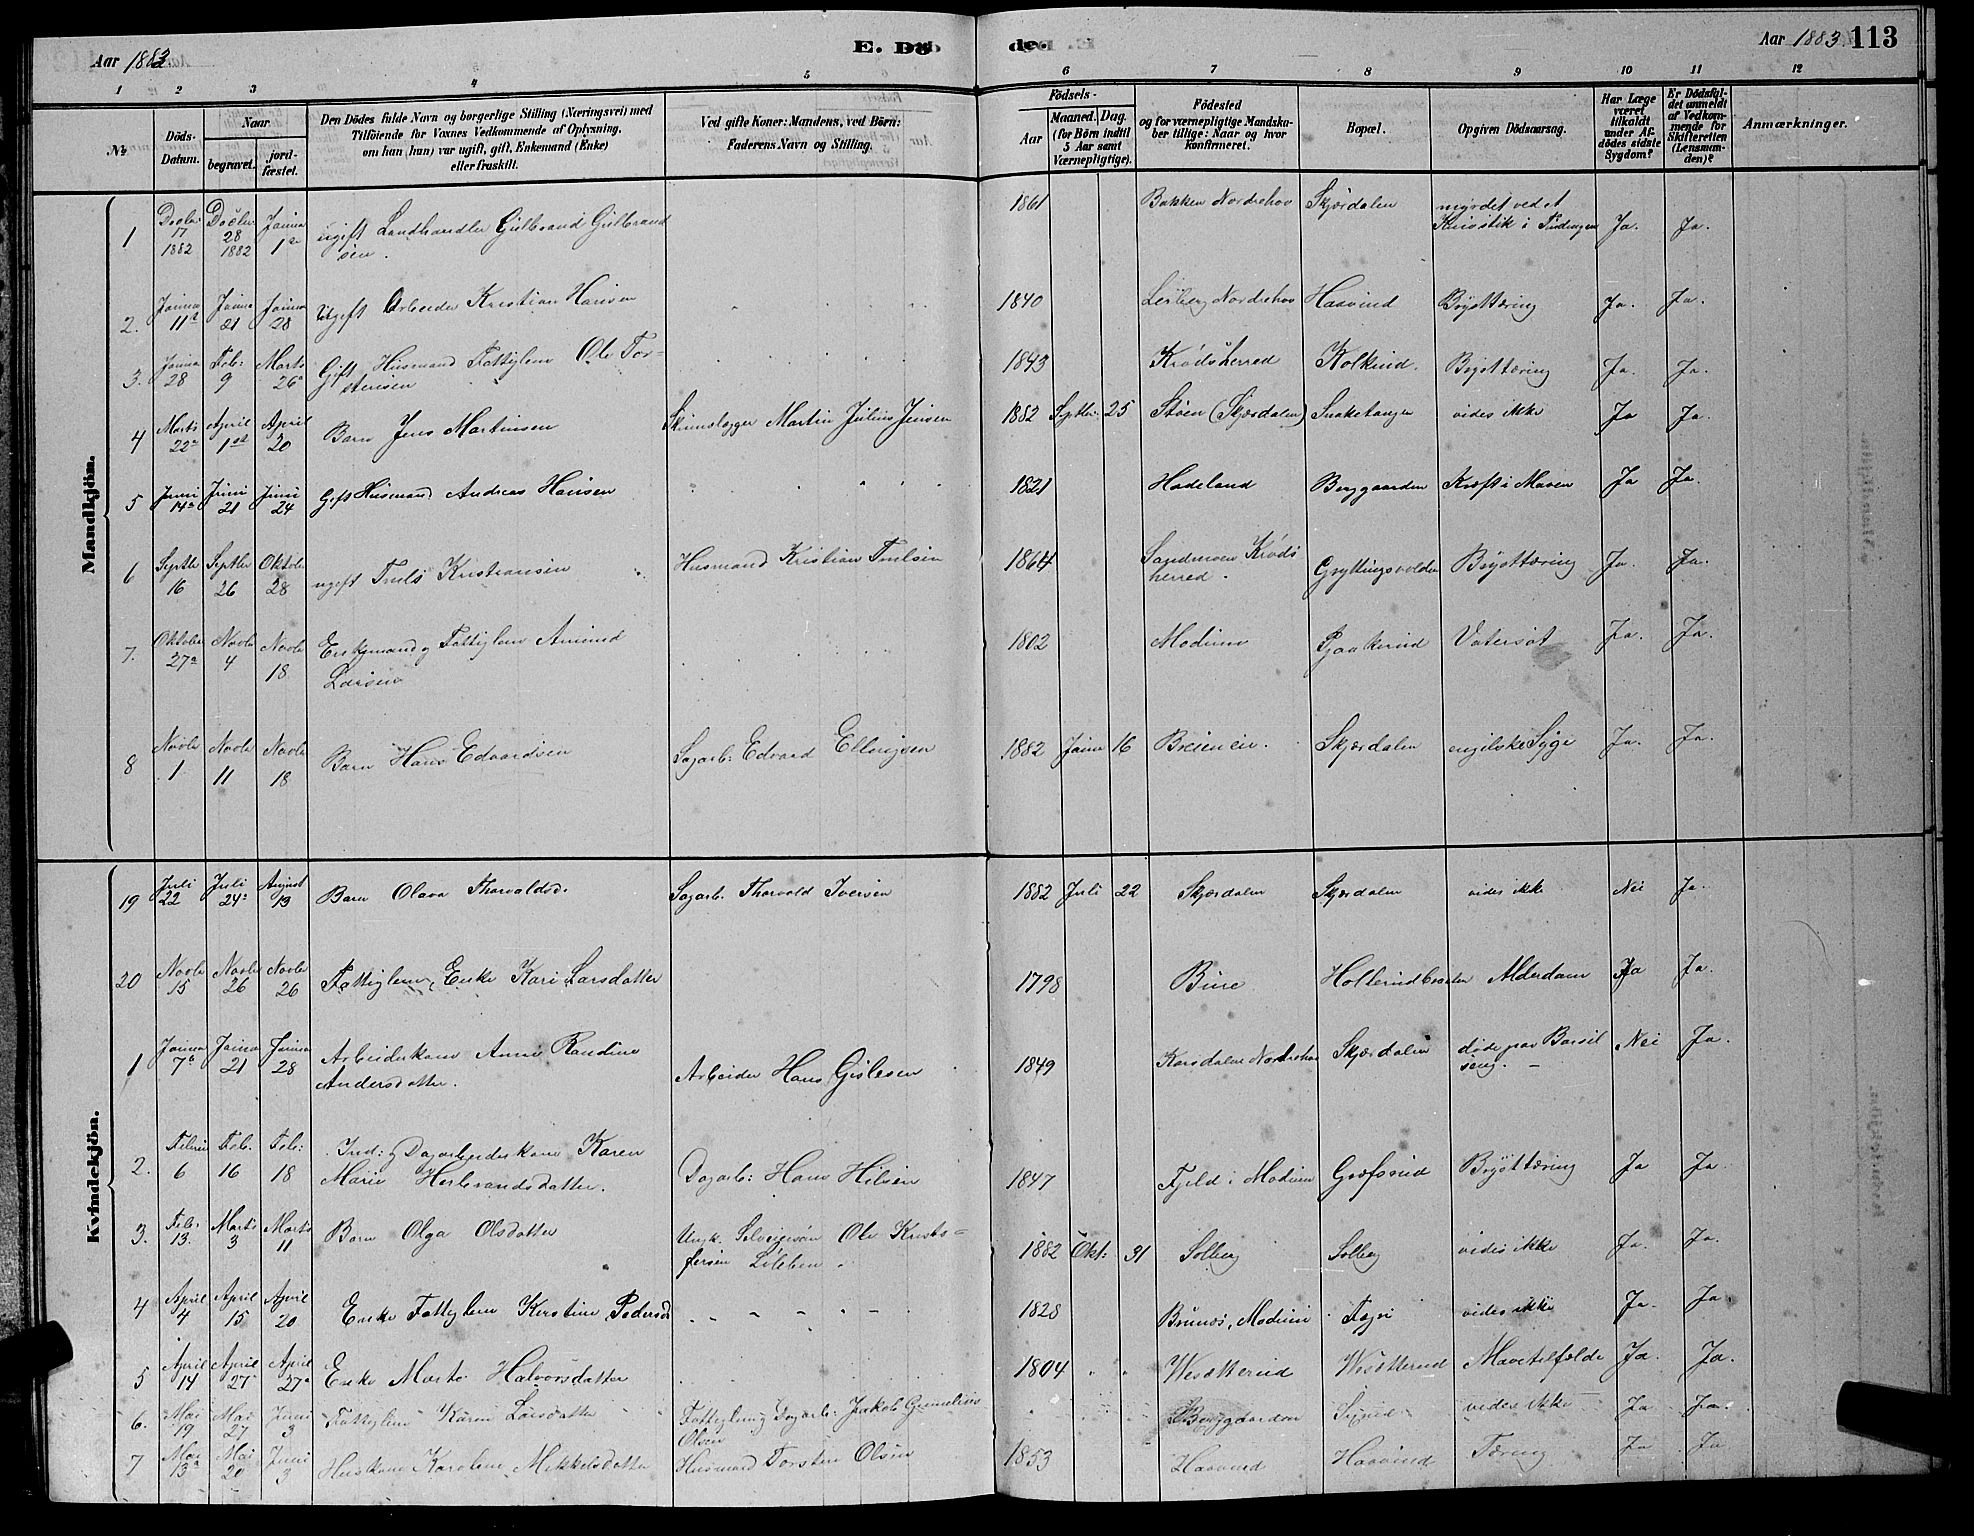 Aar 1883.
E. Dö
de.
Aar 1883
113
1 2 3 4 5 6 7 8 9 10 11 12
№
Döds-
Datum.
Naar
begravet.
jord-
fæstet.
Den Dödes fulde Navn og borgerlige Stilling (Næringsvei) med
Tilföiende for Voxnes Vedkommende af Oplysning,
om han (hun) var ugift, gift, Enkemand (Enke)
eller fraskilt.
Ved gifte Koner: Mandens, ved Börn:
Faderens Navn og Stilling.
Födsels-
Aar
Maaned. Dag.
(for Börn indtil
5 Aar samt
Værnepligtige).
Födested
og for værnepligtige Mandska-
ber tillige: Naar og hvor
Konfirmeret.
Bopæl.
Opgiven Dödsaarsag.
Har Læge
været
tilkaldt
under Af-
dödes sidste
Sygdom?
Er Dödsfal-
det anmeldt
af Vedkom-
mende for
Skifteretten
(Lensman-
den)?
Anmærkninger.
Mandkjön.
1 Decbr 17 1882 Decbr 28 1882 Januar 1 ugift Landhandler Gulbrand Gulbrand
sen. 1861 Bakken Nordrehov Skjærdalen myrdet ved et
Knivstik i Tindingen Ja. Ja.
2. Januar 11 Januar 21 Januar 28 Ugift Arbeider Kristian Hansen 1840 Lerberg Nordrehov Haavind Brysttæring Ja. Ja.
3. Januar 28 Feb: 9 Marts 26 Gift Husmand Fattiglem Ole Tor-
stensen 1843 Krødsherred Kolkind. Brysttæring Ja. Ja.
4 Marts 22 April 1 April 20 Barn Jens Martinsen Skindlægger Martin Julius Jensen 1882 Septbr. 25 Støen (Skjærdalen) Snaketangen vides ikke Ja Ja.
5 Juni 14 Juni 21 Juni 24 Gift Husmand Andreas Hansen 1821 Hadeland Berggaarden Kræft i Maven Ja Ja.
6 Septbr 16 Septbr 26 Oktober 28 ugift Truls Kristiansen Husmand Kristian Trulsen 1864 Sandmoen Krøds
herred. Gryttingsvolden Brysttæring Ja. Ja.
7. Oktober 27 Novbr 4 Novbr 18 Enkemand og Fattiglem Amund
Larsen 1802 Modum Vatersot Ja. Ja.
8 Novbr 1 Novbr 11 Novbr 18 Barn Hans Edvardsen Sagarb: Edvard Ellingsen 1882 Januar 16 Breien eie. Skjærdalen engelske Syge Ja. Ja.
Kvindekjön.
19 Juli 22 Juli 24 August 13 Barn Olava Thorvaldsd. Sagarb. Thorvald Iversen 1882 Juli 22 Skjærdalen Skjærdalen vides ikke Nei Ja.
20 Novbr 15 Novbr 26 Novbr 26 Fattiglem, Enke Kari Larsdatter 1798 Bure Alderdom Ja Ja.
1 Januar 7 Januar 21 Januar 28 Arbeiderkone Anne Randine
Andersdatter. Arbeider Hans Gislesen 1849 Korsdalen Nordrehov Skjærdalen døde paa Barsel
seng. Nei Ja.
2. Februar 6 Feb. 16 Feb: 18 Ind: og Dagarbeiderkone Karen
Marie Herbrandsdatter. Dagarb: Hans Nilsen 1847 Fjeld i Modum Græfsrud Brysttæring Ja Ja.
3. Feb. 13. Marts 3 Marts 11 Barn Olga Olsdatter Ungk. Selveiersøn Ole Kristo-
fersen Løleben 1882 Okt. 31 Solberg Solberg vides ikke Ja. Ja.
4 April 4 April 15 April 20 Enke Fattiglem Kirstine Pedersd 1828 Brunæs, Modum vides ikke Ja. Ja.
5 April 14 April 27 April 27 Enke Marte Halvorsdatter 1804 Wesætterud Wesætterud Mavetilfælde Ja. Ja.
6. Mai 19 Mai 27 Juni 3 Fattiglem Karen Larsdatter Fattiglem og Dagarb: Jakob Gunelius
Olsen Berggaarden vides ikke Ja Ja.
7 Mai 13 Mai 20 Juni 3 Huskone Karoline Mikkelsdatter Husmand Torsten Olsen 1853 Haavind Haavind Tæring Ja Ja